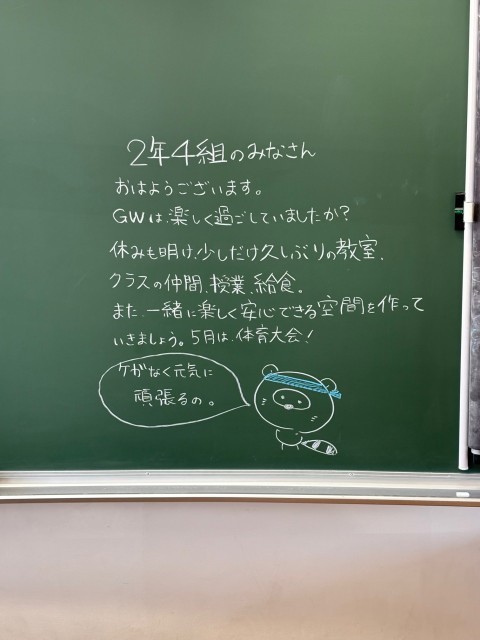 2年4組のみなさん
おはようございます。
GWは、楽しく過ごしていましたか?
休みも明け、少しだけ久しぶりの教室、
クラスの仲間、授業、給食。
また、一緒に楽しく安心できる空間を作って
いきましょう。5月は、体育大会!
ケガなく元気に
頑張るの。